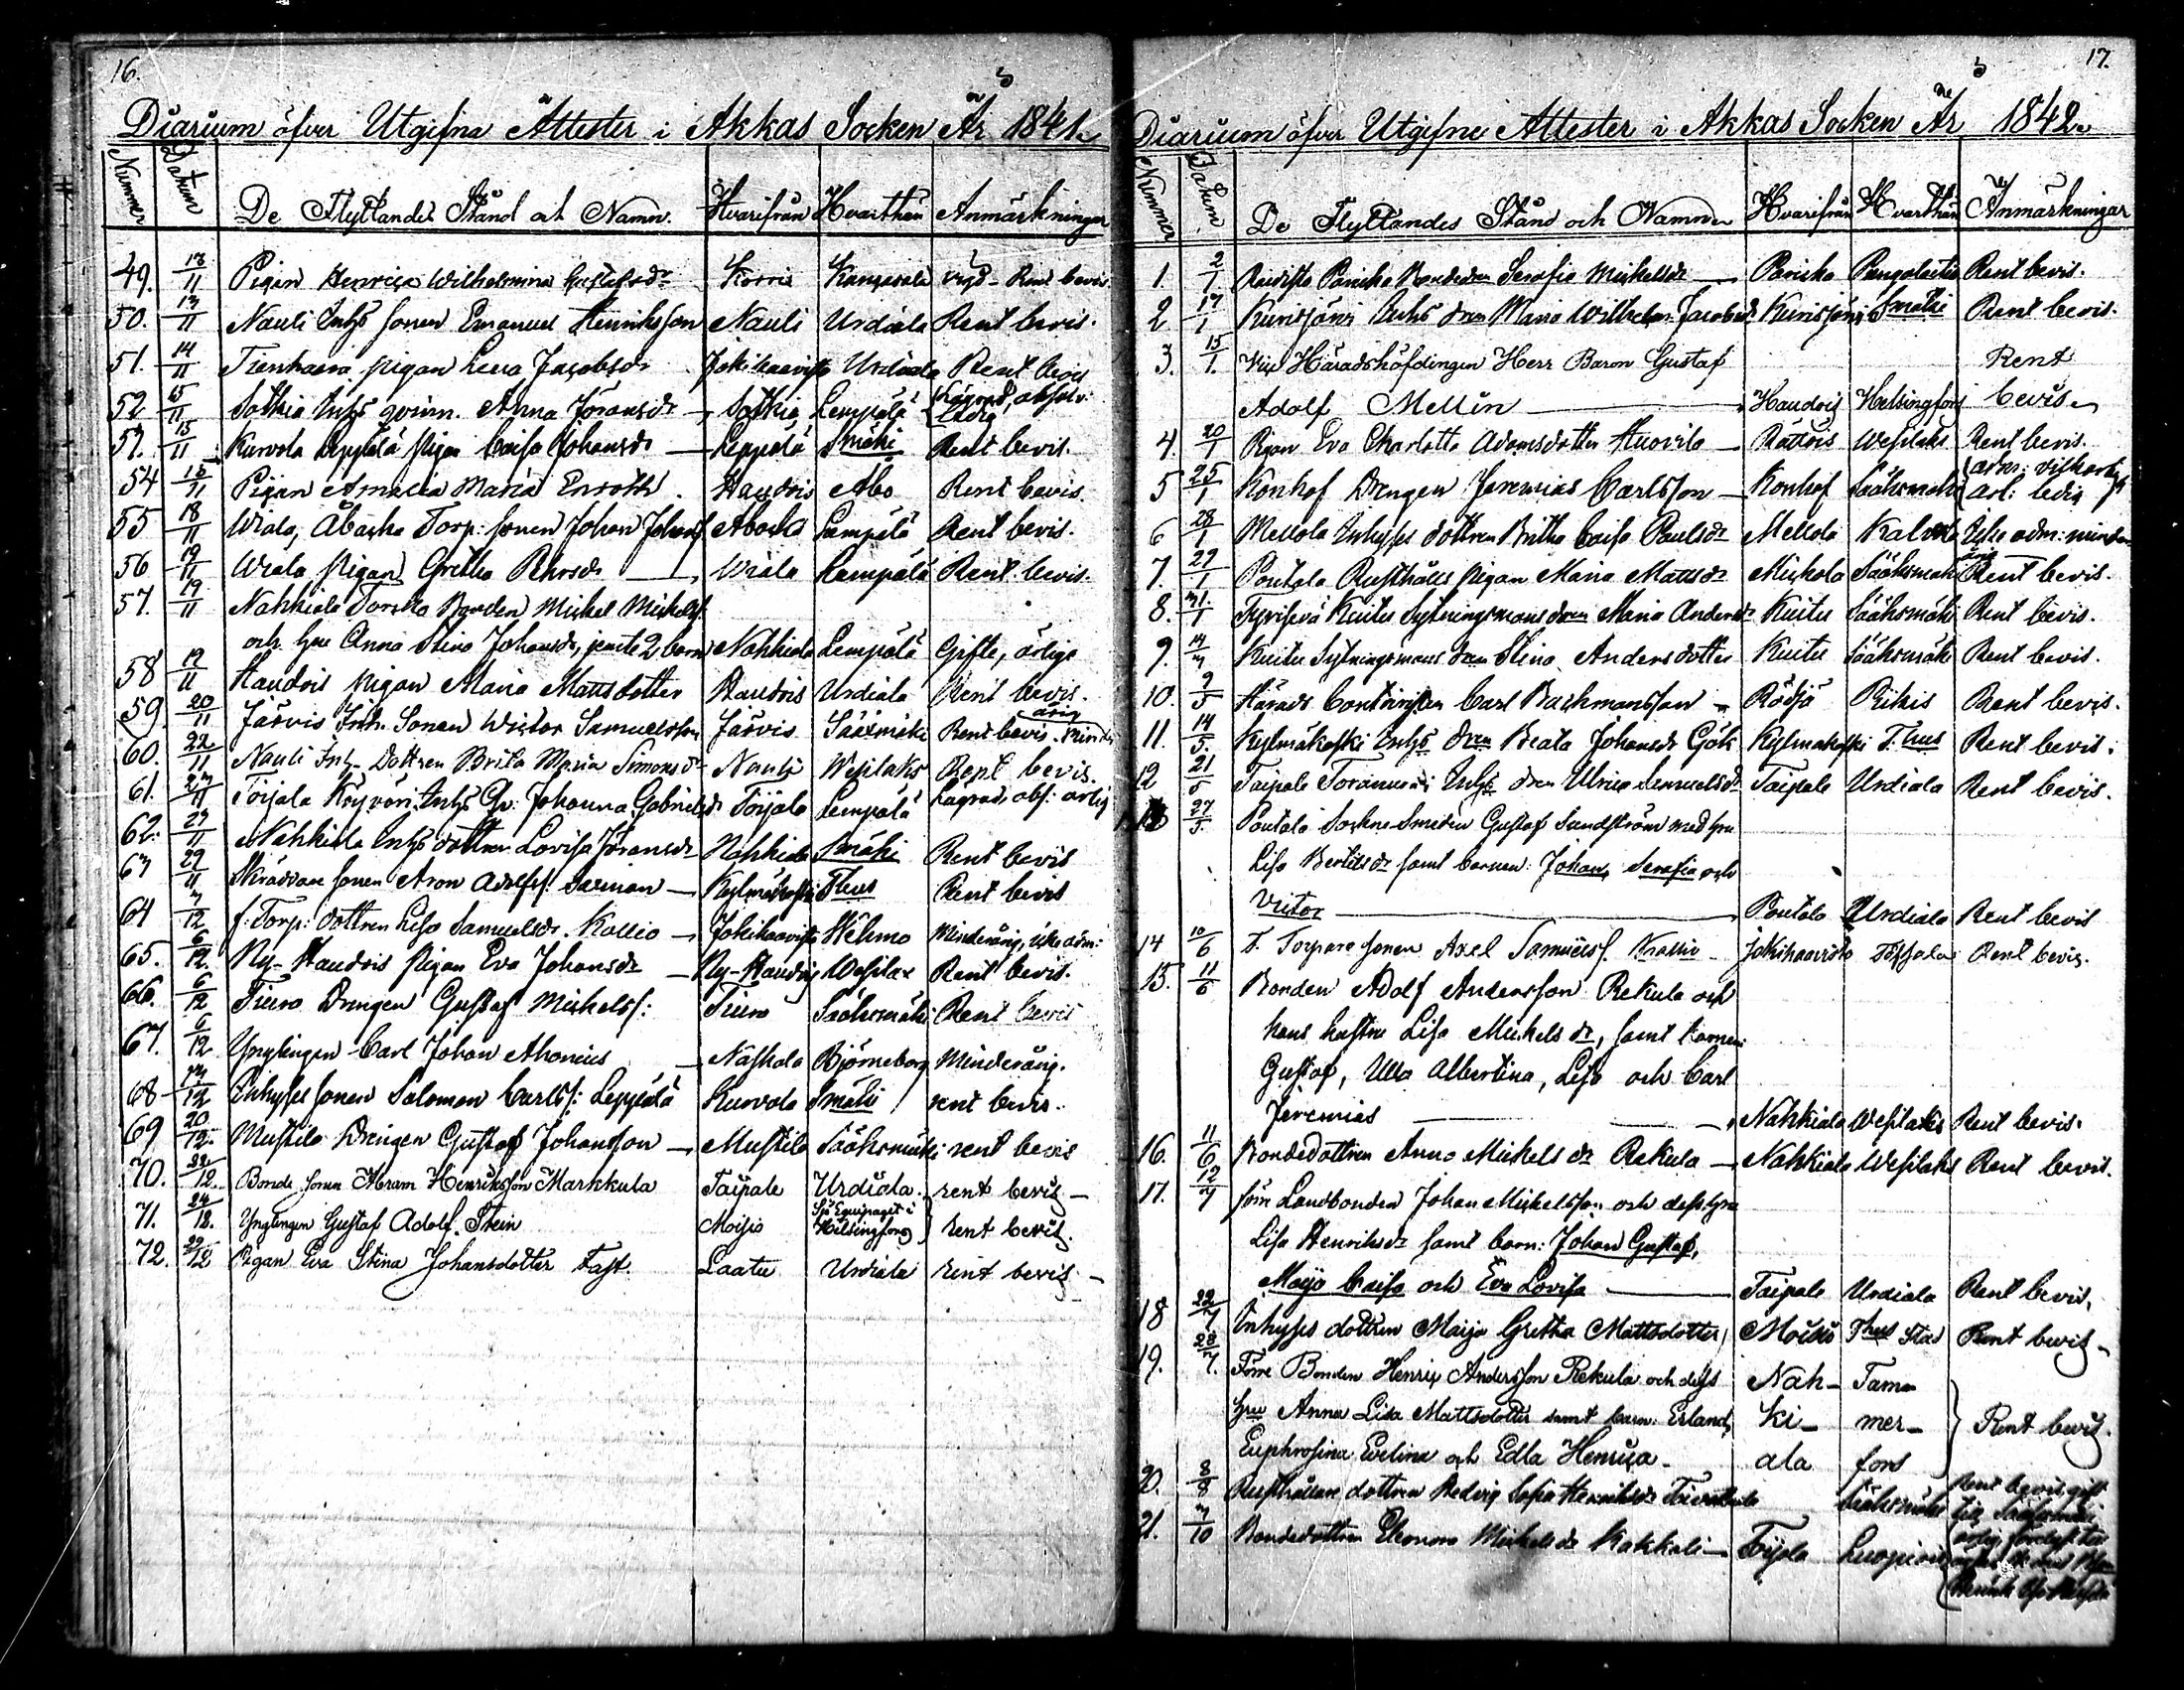 16.
Diarium öfver Utgifna Attester i Akkas Socken År 1841
Nummer Datum De Flyttandes Stånd och Namn. Hvarifrån Hvarthän Anmärkningar
49. 13/11 Pigan Henrica Wilhelmina Gustafsdr Korris Kangasala Rent bevis
50. 13/11 Nauli Inhs Sonen Emanuel Henriksson Nauli Urdiala Rent bevis.
51. 14/11 pigan Lena Jacobsdr Jokihaavisto Urdiala Rent bevis
52 15/11 Sotkia Inhs qvinn. Anna Göransdr Sotkia Lempälä Lägrad, absolv: ledig
53. 15/11 Kurvola Leppälä pigan Caisa Johansdr Leppälä Smäki Rent bevis.
54 15/11 Pigan Amalia Maria Enroth. Haudois Åbo Rent bevis.
55 18/11 Wiala, Åbacka Torp: sonen Johan Johansf Abacka Lempälä Rent bevis.
56 19/11 Wiala pigan Gretha Pehrsdr Wiala Lempälä Rent bevis.
57. 19/11 Nahkiala Torikka Bonden Mickel Mickelsf.
och hu Anna Stina Johansdr, jemte 2 barn Nahkiala Lempälä Gifte, ärliga
58 19/11 Haudois pigan Maria Mattsdotter Haudois Urdiala Rent bevis.
59. 20/11 Järvis Inh. Sonen Wictor Samuelsson Järvis Sääxmäki Rent bevis. minderårig
60. 22/11 Nauli Inh. Dottren Brita Maria Simonsdr Nauli Wesilaks Rent bevis.
61. 23/11 Toijala Köyvöri Inhs Qv: Johanna Gabrielsdr Toijala Lempälä Lägrad, abs: ärlig
62. 29/11 Nahkiala Inhs dottren Lovisa Göransdr Nahkiala Smäki Rent bevis
63 29/11 Skräddare sonen Aron Adolfsf. Saxman Kylmäkoski Thus Rent bevis
64 3/12 f: Torp: dottren Lisa Samuelsdr. Kallio Jokihaavisto Wehmo Minderårig, icke adm:
65. 6/12. Ny-Haudois pigan Eva Johansdr Ny-Haudois Wesilax Rent bevis.
66. 6/12 Drengen Gustaf Mickelsf: Sääksmäki Rent bevis
67. 6/12 Ynglingen Carl Johan Ahonius Naskala Björneborg Minderårig.
68 13/12 Inhyses sonen Salomon Carlsf: Leppälä Kurvola Smäki rent bevis.
69 20/12. Mustila Drengen Gustaf Johansson Mustila Sääksmäki rent bevis
70. 22/12. Bonde sonen Abram Henriksson Markkula Taipale Urdiala. rent bevis
71. 24/12. Ynglingen Gustaf Adolf Stein Moisio Sjö Equipaget i Helsingfors rent bevis.
72. 29/12 Pigan Eva Stina Johansdotter Fast. Laatu Urdiala rent bevis
17.
Diarium öfver Utgifne Attester i Akkas Socken År 1842
Nummer Datum De Flyttandes Stånd och Namn Hvarifrån Hvarthän Anmärkningar
1. 2/1 Paricka Bondedren Serafia Mickelsdr Paricka Rent bevis.
2 17/1 Kurisjärvi Inhs dren Maria Wilhelm. Jacobsdr Kurisjärvi Smäki Rent bevis.
3. 15/1. Vice Häradshöfdingen Herr Baron Gustaf Rent
Adolf Mellin Haudois Helsingfors bevis
4. 20/1 Pigan Eva Charlotta Adamsdotter Kuovila Rättois Wesilaks Rent bevis.
5 25/1 Konhof Drengen Jeremias Carlsson Konhof Sääksmäki
6 28/1 Mellola Inhyses dottren Britha Caisa Paulsdr Mellola Kalvola Icke adm: minderårig
7. 29/1 Pontala Rusthålls pigan Maria Mattsdr Mickola Sääksmäki Rent bevis.
8. 31/1 Kuitu Sytningsmans dren Maria Andersdr Kuitu Sääksmäki Rent bevis.
9. 14/3 Kuitu Sytningsmans dren Stina Andersdotter Kuitu Sääksmäki Rent bevis.
10. 9/5 Härads Carl Bachmansson Rödjä Rikis Rent bevis.
11. 14/5. Kylmäkoski Inhs dren Beata Johansdr Gök Kylmäkoski T:hus Rent bevis.
12 21/5 Taipale Inhs dren Ulrica Samuelsdr Taipale Urdiala Rent bevis.
13 27/5. Pontala Sockne Smeden Gustaf Sundström med hu
Lisa Bertilsdr samt barnen: Johan, Serafia och
Victor Pontala Urdiala Rent bevis
14 10/6 F. Torpare sonen Axel Samuelsf. Kallio Jokihaavisto Rent bevis.
15. 11/6 Bonden Adolf Andersson Rekula och
hans hustru Lisa Mickelsdr, samt barnen:
Gustaf, Ulla Albertina, Lisa och Carl
Jeremias Nahkiala Wesilaks Rent bevis.
16. 11/6 Bondedottren Anna Mickelsdr Rekula Nahkiala Wesilaks Rent bevis.
17. 12/7 förre Landbonden Johan Mickelsson och dess hu
Lisa Henriksdr samt barn: Johan Gustaf,
Maija Caisa och Eva Lovisa Taipale Urdiala Rent bevis,
18 22/7 Inhyses dottren Maija Gretha Mattsdotter Moisio Thus Stad Rent bevis
19. 28/7. Förre Bonden Henrix Andersson Rekula och dess Nah- Tam-
hu Anna Lisa Mattsdotter samt barn: Erland, ki- mer- Rent bevis.
Euphrosina Evelina och Edla Henrica ala fors
20. 8/8 Rusthållare dottren Hedvig Sofia Henriksdr Sääksmäki Rent bevis
21. 3/10 Bondedottren Eleonora Mickelsdr Kakkali Toijala Luopiois